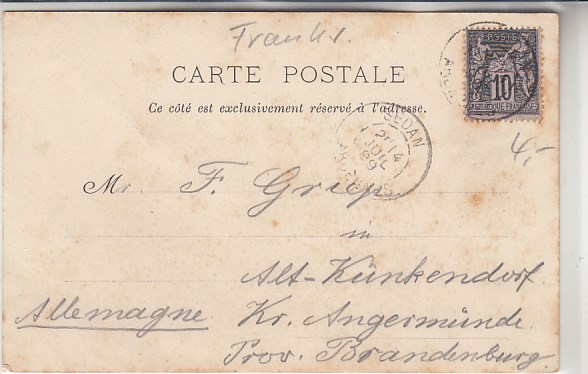 Frankr.
CARTE POSTALE
Ce côté est exclusivement réservé à l'adresse.
POSTE
10
SEDAN
14
JUIL
99
ARDENNES
4,-
Mr. F. Griep
in
Alt-Künkendorf
Allemagne Kr. Angermünde
Prov. Brandenburg.